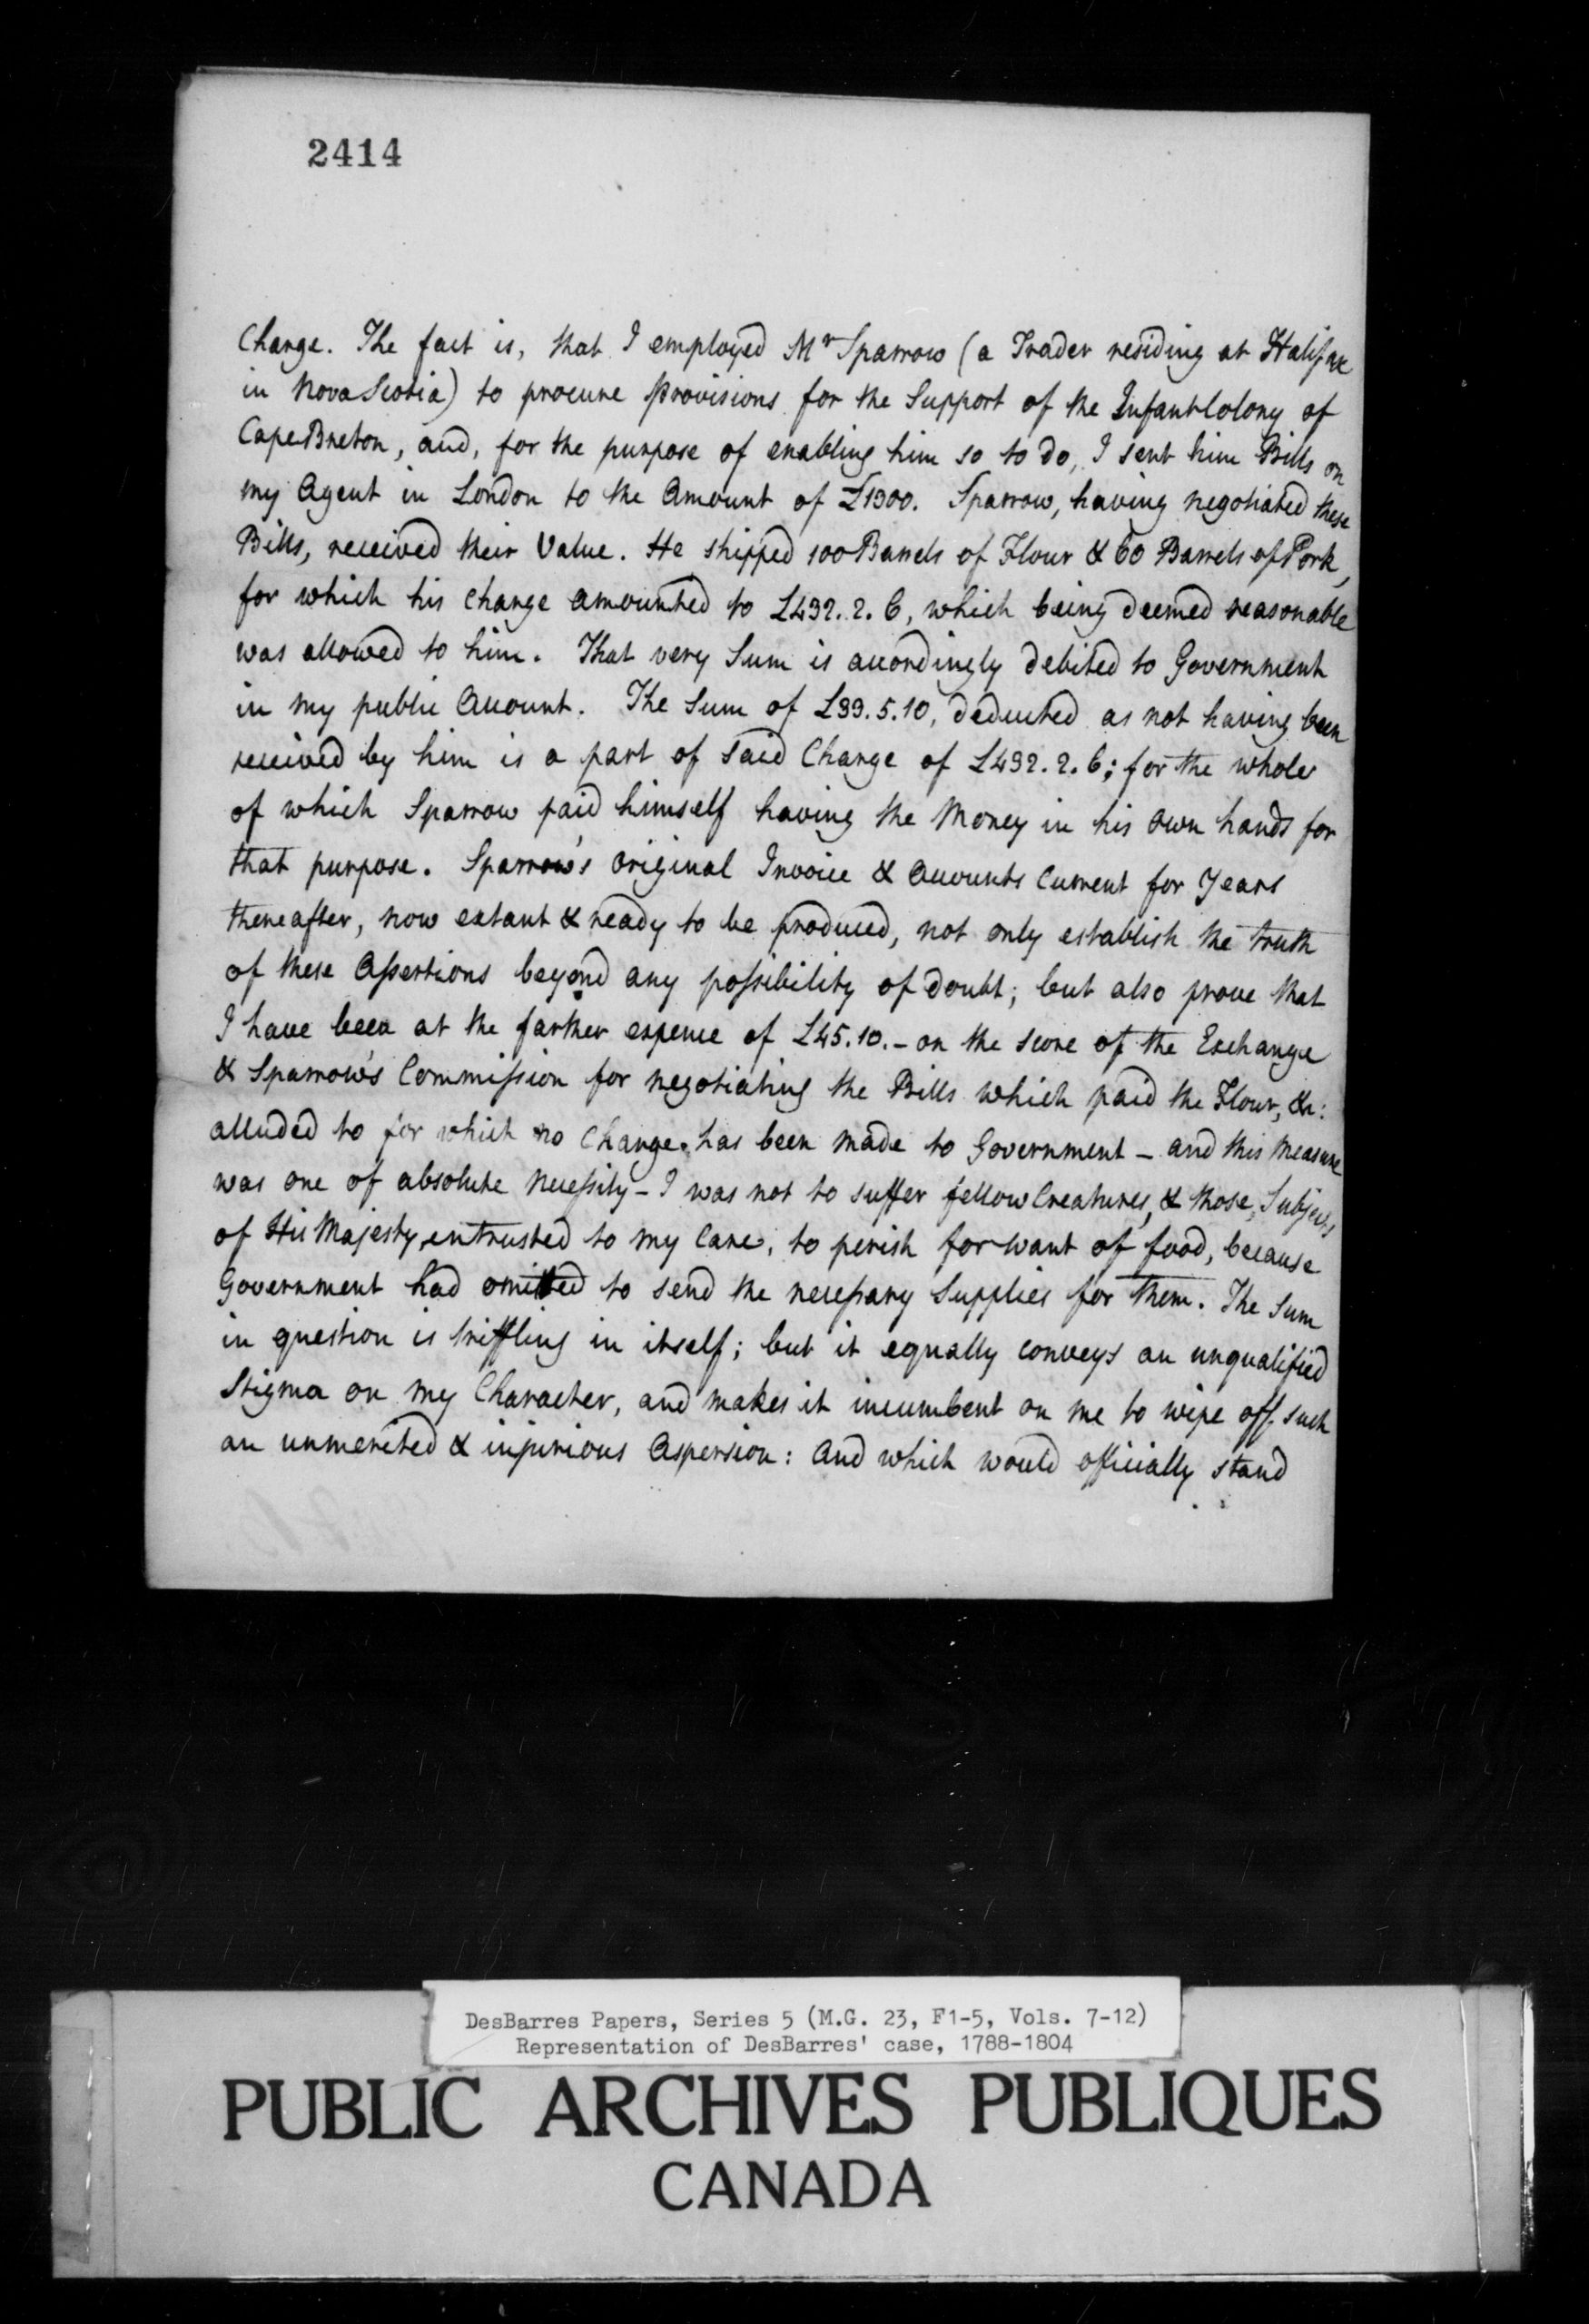 2414
Charge. The fact is, that I employed Mr Sparrow (a Trader residing at Halifax
in Nova Scotia) to procure Provisions for the Support of the Infant Colony of
Cape Breton, and, for the purpose of enabling him so to do, I sent him Bills on
my Agent in London to the Amount of £1300. Sparrow, having negotiated these
Bills, received their Value. He shipped 100 Barrels of Flour & 60 Barrels of Pork,
for which his charge amounted to £432.2.6, which being deemed reasonable
was allowed to him. That very Sum is accordingly debited to Government
in my public Account. The Sum of £33.5.10, deducted as not having been
received by him is a part of said Charge of £432.2.6; for the whole
of which Sparrow paid himself having the Money in his own hands for
that purpose. Sparrow's original Invoice & Accounts Current for Years
thereafter, now extant & ready to be produced, not only establish the truth
of these Assertions beyond any possibility of doubt; but also prove that
I have been at the farther expence of £45.10.- on the score of the Exchange
& Sparrow's Commission for negotiating the Bills which paid the Flour, &c:
alluded to for which no Charge has been made to Government - and this Measure
was one of absolute Necessity - I was not to suffer fellow Creatures, & those, Subjects
of His Majesty, entrusted to my Care, to perish for want of food, because
Government had omitted to send the necessary Supplies for them. The Sum
in question is triffling in itself; but it equally conveys an unqualified
Stigma on my Character, and makes it incumbent on me to wipe off such
an unmerited & injurious Aspersion: And which would officially stand
DesBarres Papers, Series 5 (M.G. 23, F1-5, Vols. 7-12)
Representation of DesBarres' case, 1788-1804
PUBLIC ARCHIVES PUBLIQUES
CANADA